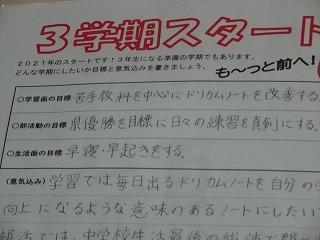 3学期スタート
2021年のスタートです!3年生になる準備の学期でもあります。
どんな学期にしたいか目標と意気込みを書きましょう。
も〜っと前へ!
○学習面の目標 苦手教科を中心にドリカムノートを改善する
○部活動の目標 県優勝を目標に日々の練習を真剣にする。
○生活面の目標 早寝・早起きをする。
(意気込み) 学習では、毎日出るドリカムノートを自分の
向上になるような意味のあるノートにしたい
部活では、中学校生活最後の総体で郡